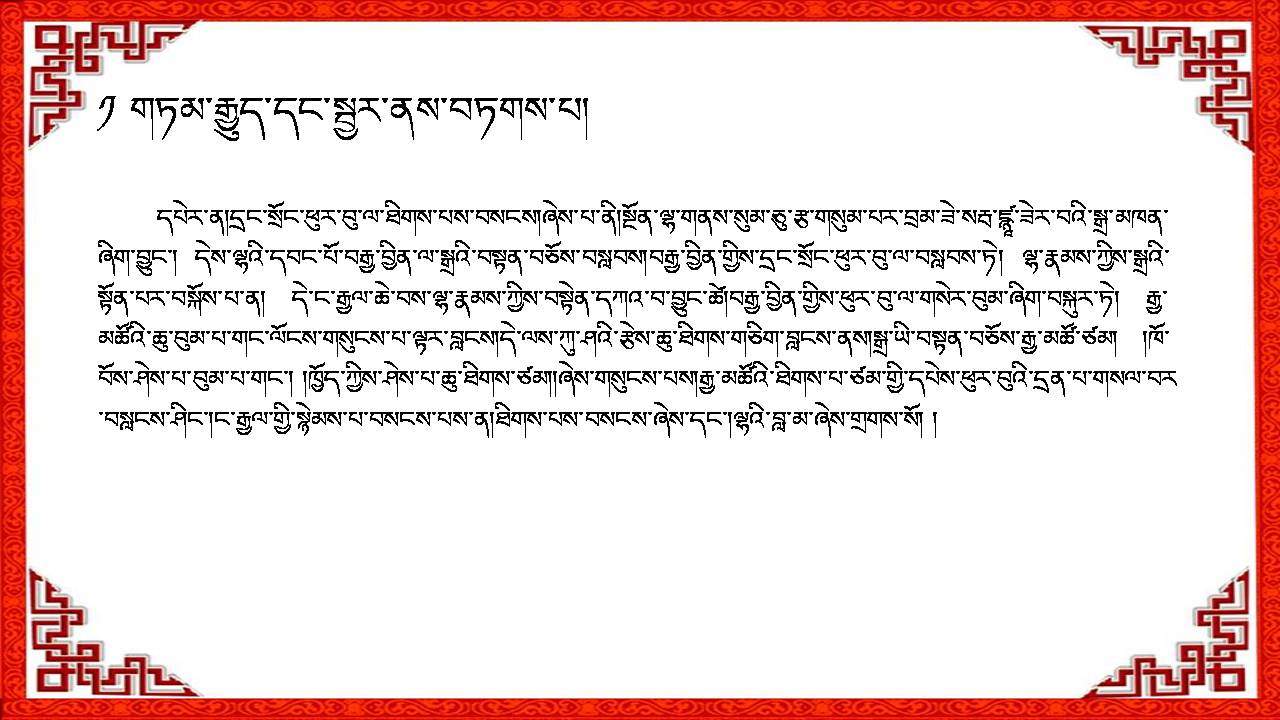 ༡ གཏམ་རྒྱུད་དང་སྦྱར་ནས་བཏགས་པ།
དཔེར་ན།དྲང་སྲོང་ཕུར་བུ་ལ་ཐིགས་པས་བསངས།ཞེས་པ་ནི།སྔོན་ལྷ་གནས་སུམ་ཅུ་རྩ་གསུམ་པར་བྲམ་ཟེ་སརྦ་ཛྙཱ་ཟེར་བའི་སྒྲ་མཁན་
ཞིག་བྱུང་། དེས་ལྷའི་དབང་པོ་བརྒྱ་བྱིན་ལ་སྒྲའི་བསྟན་བཅོས་བསླབས།བརྒྱ་བྱིན་གྱིས་དྲང་སྲོང་ཕུར་བུ་ལ་བསླབས་ཏེ། ལྷ་རྣམས་ཀྱིས་སྒྲའི་
སྟོན་པར་བསྐོས་པ་ན། དེ་ང་རྒྱལ་ཆེ་བས་ལྷ་རྣམས་ཀྱིས་བསྟེན་དཀའ་བ་བྱུང་ཚེ།བརྒྱ་བྱིན་གྱིས་ཕུར་བུ་ལ་གསེར་བུམ་ཞིག་བསྐུར་ཏེ། རྒྱ་
མཚོའི་ཆུ་བུམ་པ་གང་ལོངས་གསུངས་པ་ལྟར་བླངས།དེ་ལས་ཀུ་ཤའི་རྩེས་ཆུ་ཐིགས་གཅིག་བླངས་ནས།སྒྲ་ཡི་བསྟན་བཅོས་རྒྱ་མཚོ་ཙམ། །ཁོ་
བོས་ཤེས་པ་བུམ་པ་གང་། །ཁྱོད་ཀྱིས་ཤེས་པ་ཆུ་ཐིགས་ཙམ།།ཞེས་གསུངས་པས།རྒྱ་མཚོའི་ཐིགས་པ་ཙམ་གྱི་དཔེས་ཕུར་བུའི་དྲན་པ་གསལ་བར
་བསླངས་ཤིང་།ང་རྒྱལ་གྱི་སྙེམས་པ་བསངས་པས་ན།ཐིགས་པས་བསངས་ཞེས་དང་།ལྷའི་བླ་མ་ཞེས་གྲགས་སོ། །